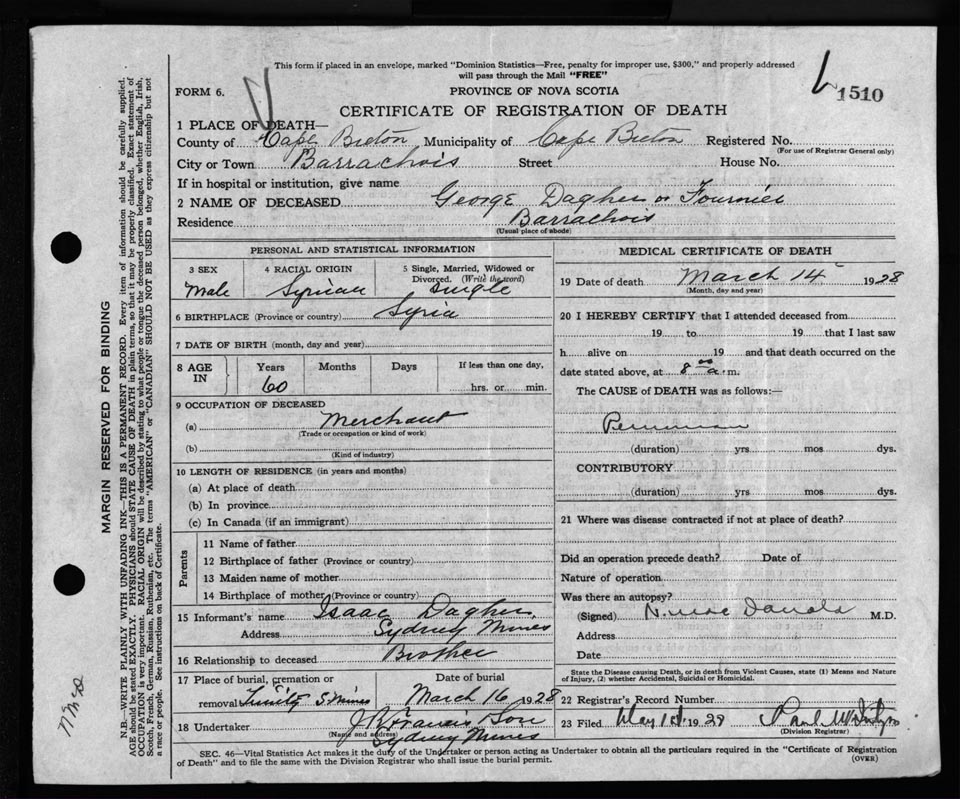 This form if placed in an envelope, marked "Dominion Statistics—Free, penalty for improper use, $300," and properly addressed
will pass through the Mail "FREE"
FORM 6.
PROVINCE OF NOVA SCOTIA
1510
CERTIFICATE OF REGISTRATION OF DEATH
1 PLACE OF DEATH—
County of Cape Breton Municipality of Cape Breton Registered No.
(For use of Registrar General only)
City or Town Barrachois Street House No.
If in hospital or institution, give name
2 NAME OF DECEASED George Dagher or Fournier
Residence Barrachois
(Usual place of abode)
PERSONAL AND STATISTICAL INFORMATION
3 SEX 4 RACIAL ORIGIN 5 Single, Married, Widowed or Divorced. (Write the word)
Male Syrian Single
6 BIRTHPLACE (Province or country) Syria
7 DATE OF BIRTH (month, day and year)
8 AGE IN Years Months Days If less than one day,
60 hrs. or min.
9 OCCUPATION OF DECEASED
(a) Merchant
(Trade or occupation or kind of work)
(b)
(Kind of industry)
10 LENGTH OF RESIDENCE (in years and months)
(a) At place of death
(b) In province
(c) In Canada (if an immigrant)
Parents
11 Name of father
12 Birthplace of father (Province or country)
13 Maiden name of mother
14 Birthplace of mother (Province or country)
15 Informant's name Isaac Dagher
Address Sydney Mines
16 Relationship to deceased Brother
17 Place of burial, cremation or removal Trinity S Mines
Date of burial
March 16 1928
18 Undertaker J R Francis Son
(Name and address)
Sydney Mines
MEDICAL CERTIFICATE OF DEATH
19 Date of death March 14 1928
(Month, day and year)
20 I HEREBY CERTIFY that I attended deceased from
19 to 19 that I last saw
h alive on 19 and that death occurred on
date stated above, at 8 00 a.m.
The CAUSE of DEATH was as follows:—
(duration) yrs mos dys.
CONTRIBUTORY
(duration) yrs mos dys.
21 Where was disease contracted if not at place of death?
Did an operation precede death? Date of
Nature of operation
Was there an autopsy?
(Signed) N. MacDonald M.D.
Address
Date
State the Disease causing Death, or in death from Violent Causes, state (1) Means and Nature
of Injury, (2) whether Accidental, Suicidal or Homicidal.
22 Registrar's Record Number
23 Filed May 1st 1929 Paul
(Division Registrar)
SEC. 46—Vital Statistics Act makes it the duty of the Undertaker or person acting as Undertaker to obtain all the particulars required in the "Certificate of Registration
of Death" and to file the same with the Division Registrar who shall issue the burial permit.
(OVER)
MARGIN RESERVED FOR BINDING
N.B.—WRITE PLAINLY WITH UNFADING INK—THIS IS A PERMANENT RECORD. Every item of information should be carefully supplied.
AGE should be stated EXACTLY. PHYSICIANS should STATE CAUSE OF DEATH in plain terms, so that it may be properly classified. Exact statement of
OCCUPATION is very important. RACIAL ORIGIN will be described by stating to what people or tongue the deceased person belonged, whether English, Irish,
Scotch, French, German, Russian, Ruthenian, etc. The terms "AMERICAN" or "CANADIAN" SHOULD NOT BE USED as they express citizenship but not
a race or people. See instructions on back of Certificate.